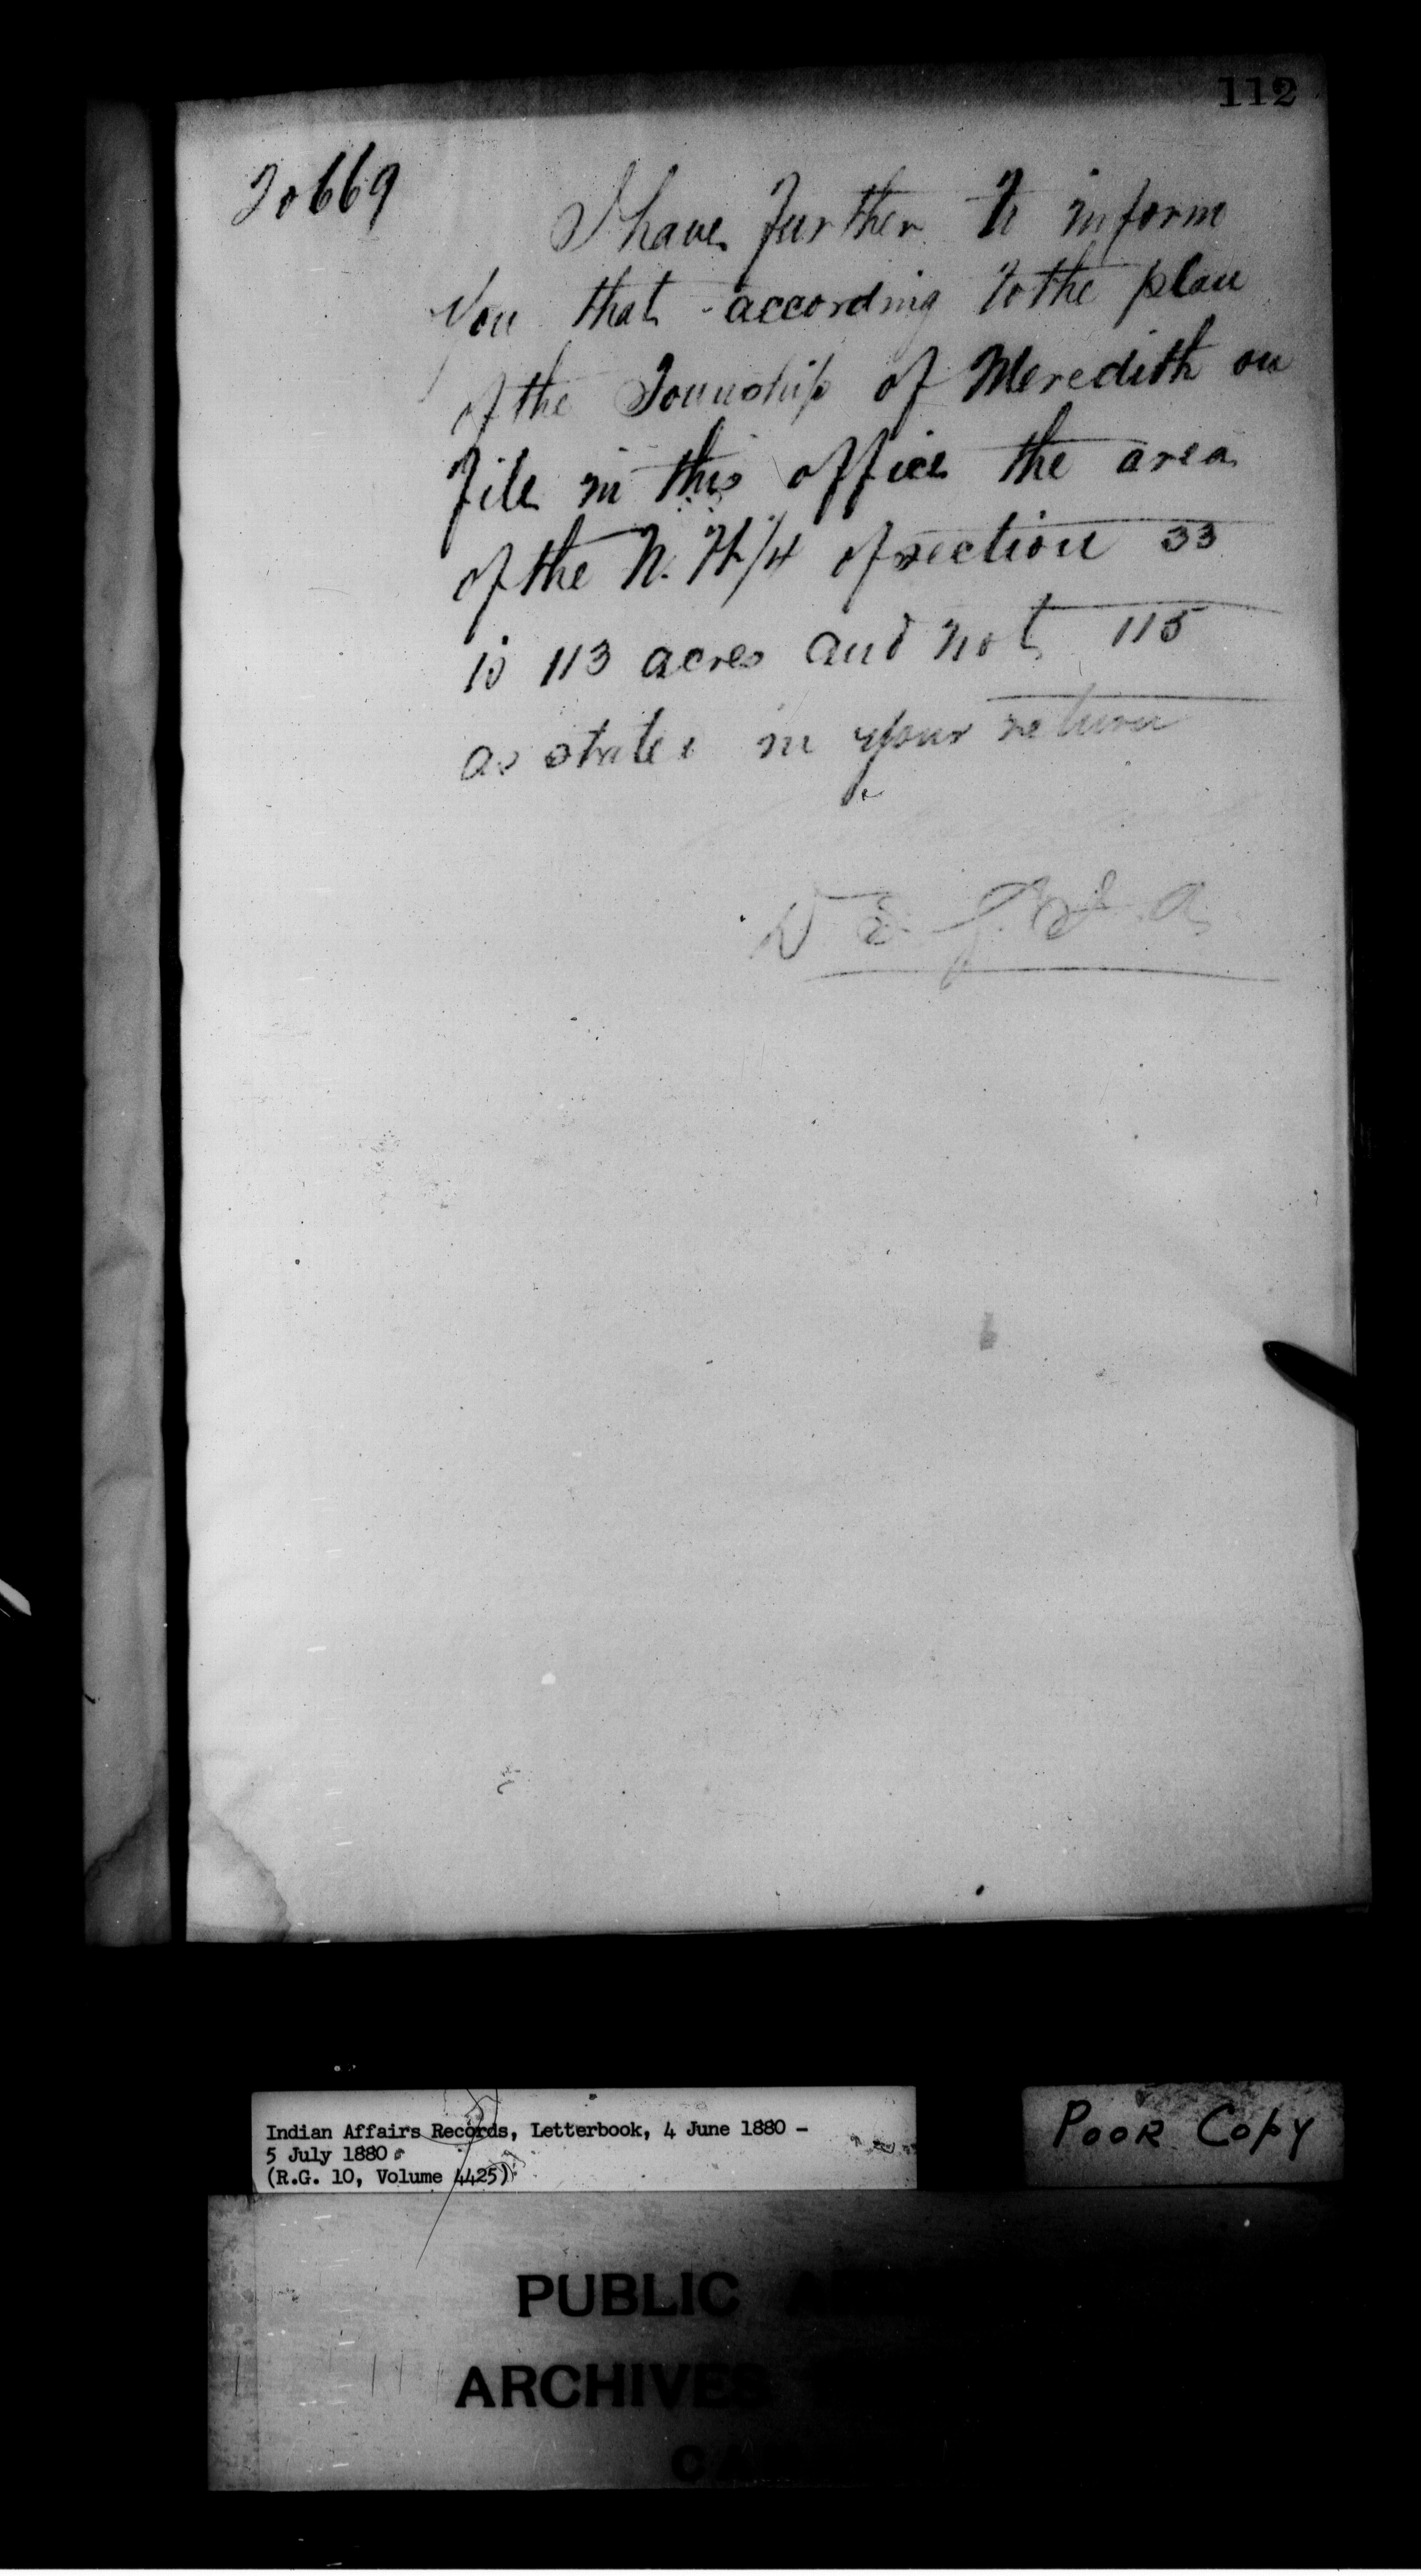 112
20669
I have further to inform
you that according to the plan
of the Township of Meredith on
file in this office the area
of the N. W/4 of section 33
is 113 acres and not 115
as stated in your return
Indian Affairs Records, Letterbook, 4 June 1880 -
5 July 1880
(R.G. 10, Volume 4425)
Poor Copy
PUBLIC
ARCHIVES